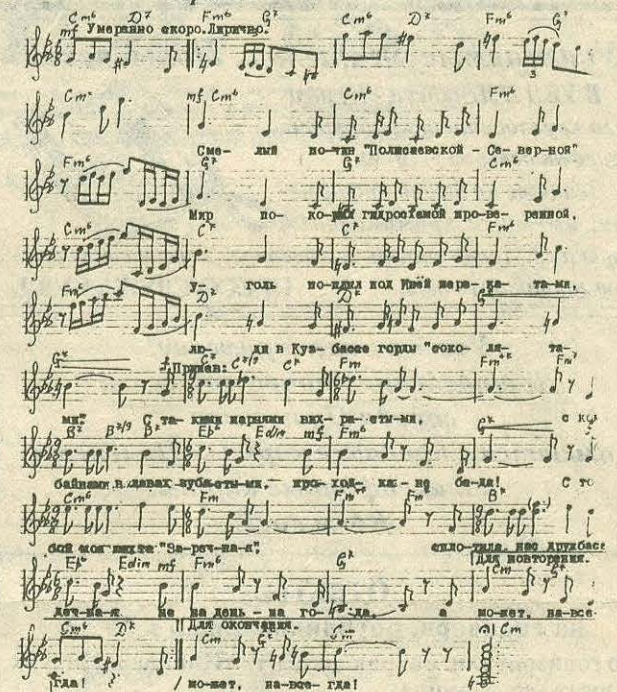 Cm6 D7 Fm6 G7 Cm6 D7 Fm6 G7
mf Умеренно скоро. Лирично.
3
Cm mf Cm6 Cm6 Fm6
Сме- лый по-чин "Полысаевской - Се- вер-ной"
Fm6 G7 G7 Cm6
Мир по- ко-рил гидросхемой про-ве- ренной,
Cm6 C7 C7 Fm6
у- голь по-плыл под Инёй пере- ка- та-ми,
Fm6 D7 D7 G7
лю- ди в Куз- бассе горды "соко- ля- та-
G7 f Припев: C7 C7/9 C7 Fm Fm Fm7
ми." С та- кими парнями вих- ра- сты-ми, с ком
B7 B7/9 B7 Eb6 Edim mf Fm6 G7
байнами в лавах зубасты-ми, про- ход- ка- не бе-да! С то
Cm6 Fm Fm Fm B7
бой моя шахта "За-реч-на-я", спло-тила нас дружба
Для повторения.
Eb6 Edim mf Fm6 G7 Cm G7
деч-на-я не на день - на го- да, а мо-жет, на-все-
Для окончания.
Cm6 D7 Cm G7 Cm Cm
гда! / мо-жет, на-все- гда!